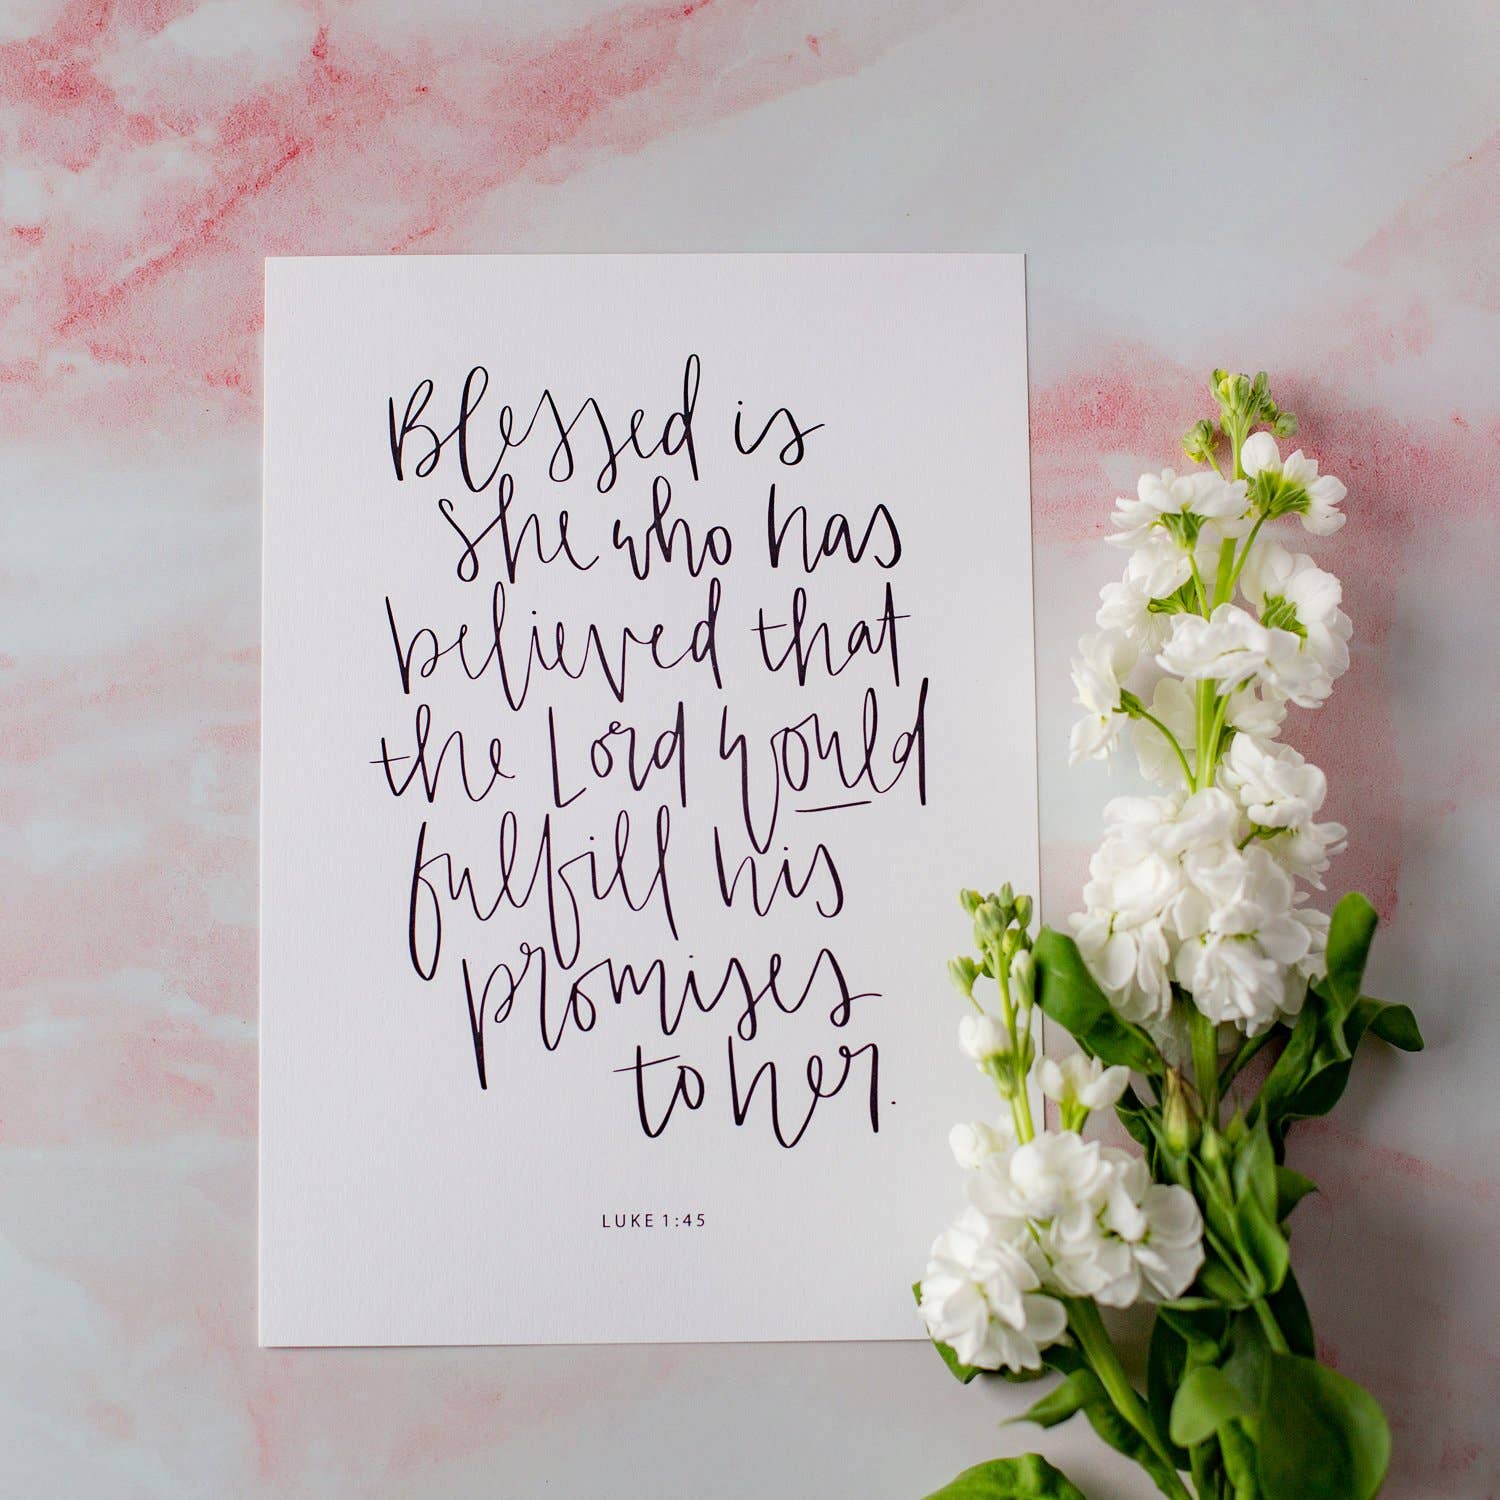 Blessed is
she who has
believed that
the Lord would
fulfill his
promises
to her.
LUKE 1:45